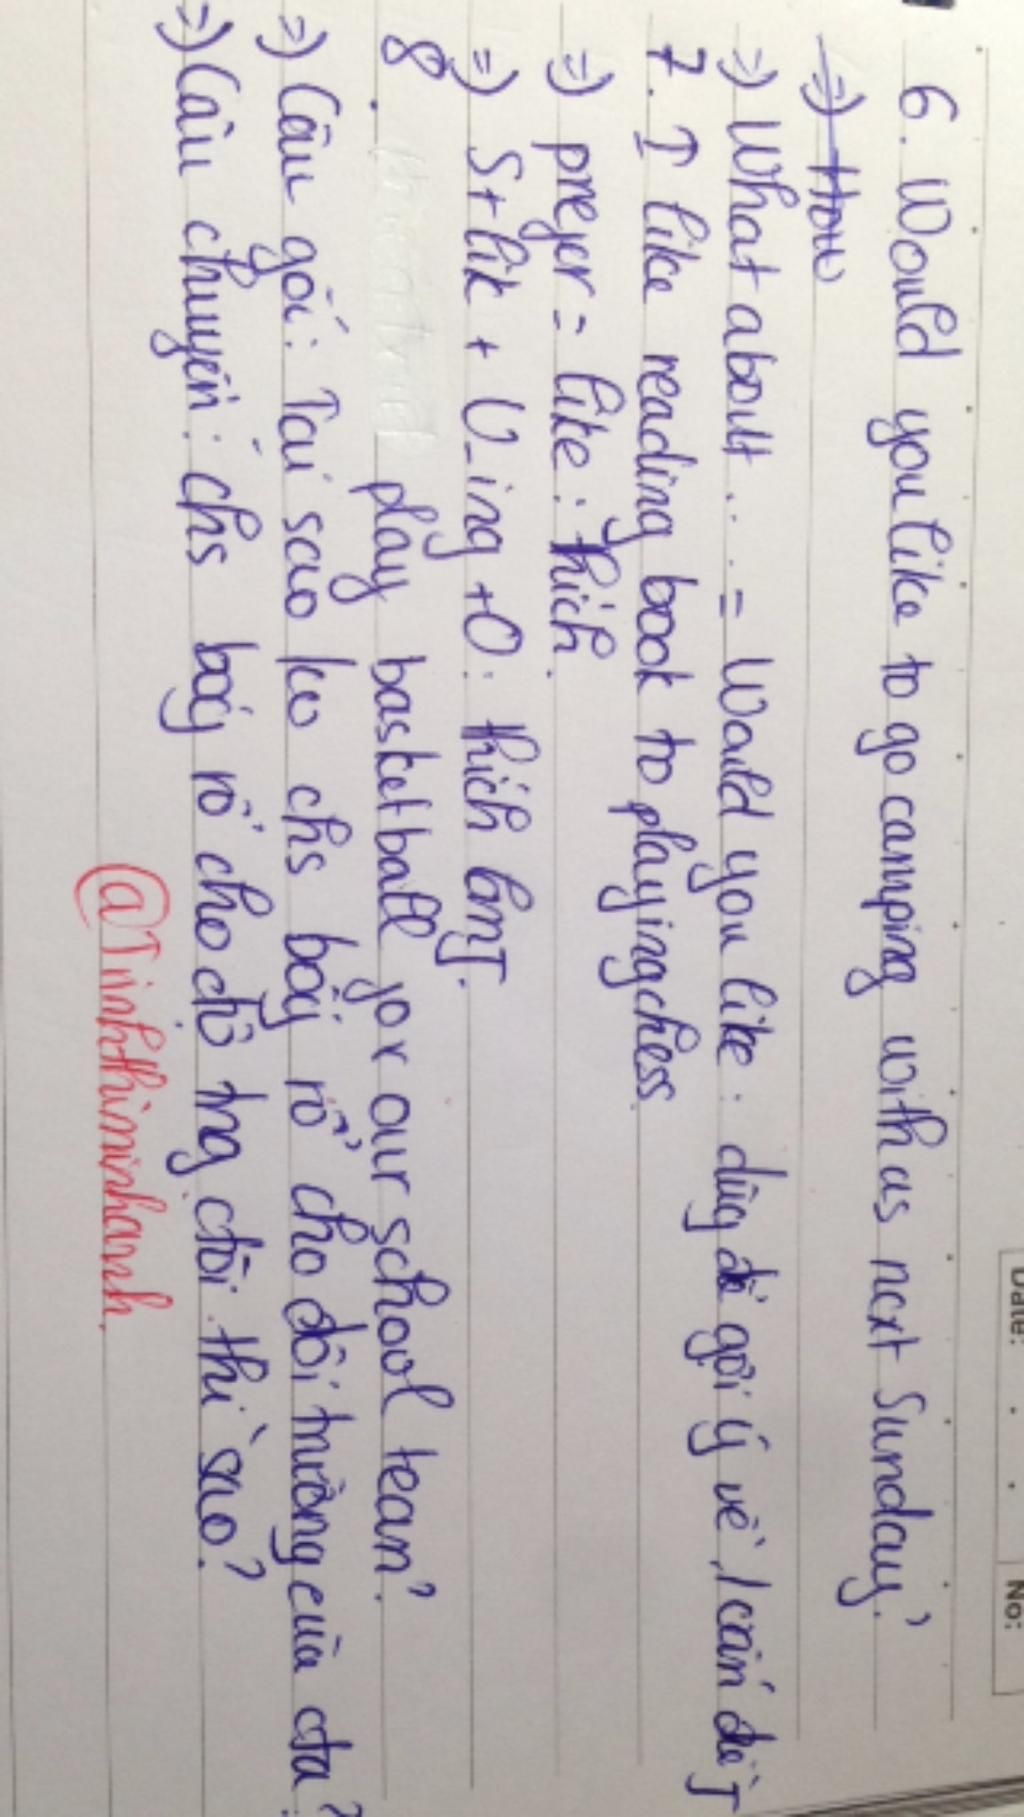 Date:
No:
6. Would you like to go camping with us next Sunday?
=) How
=) What about... = Would you like: dùg để gợi ý về 1 cái đề j
7. I like reading book to playing chess
=) prefer = like: thích.
=) S + lik + V_ing + O: thích lmj.
8. play basketball for our school team?
=) Câu gốc: Tại sao ko chs bóg rổ cho đội trường của cta?
=) Câu chuyển: chs bóg rổ cho đt trg cđôi thì sao?
@Trinhthiminhanh.